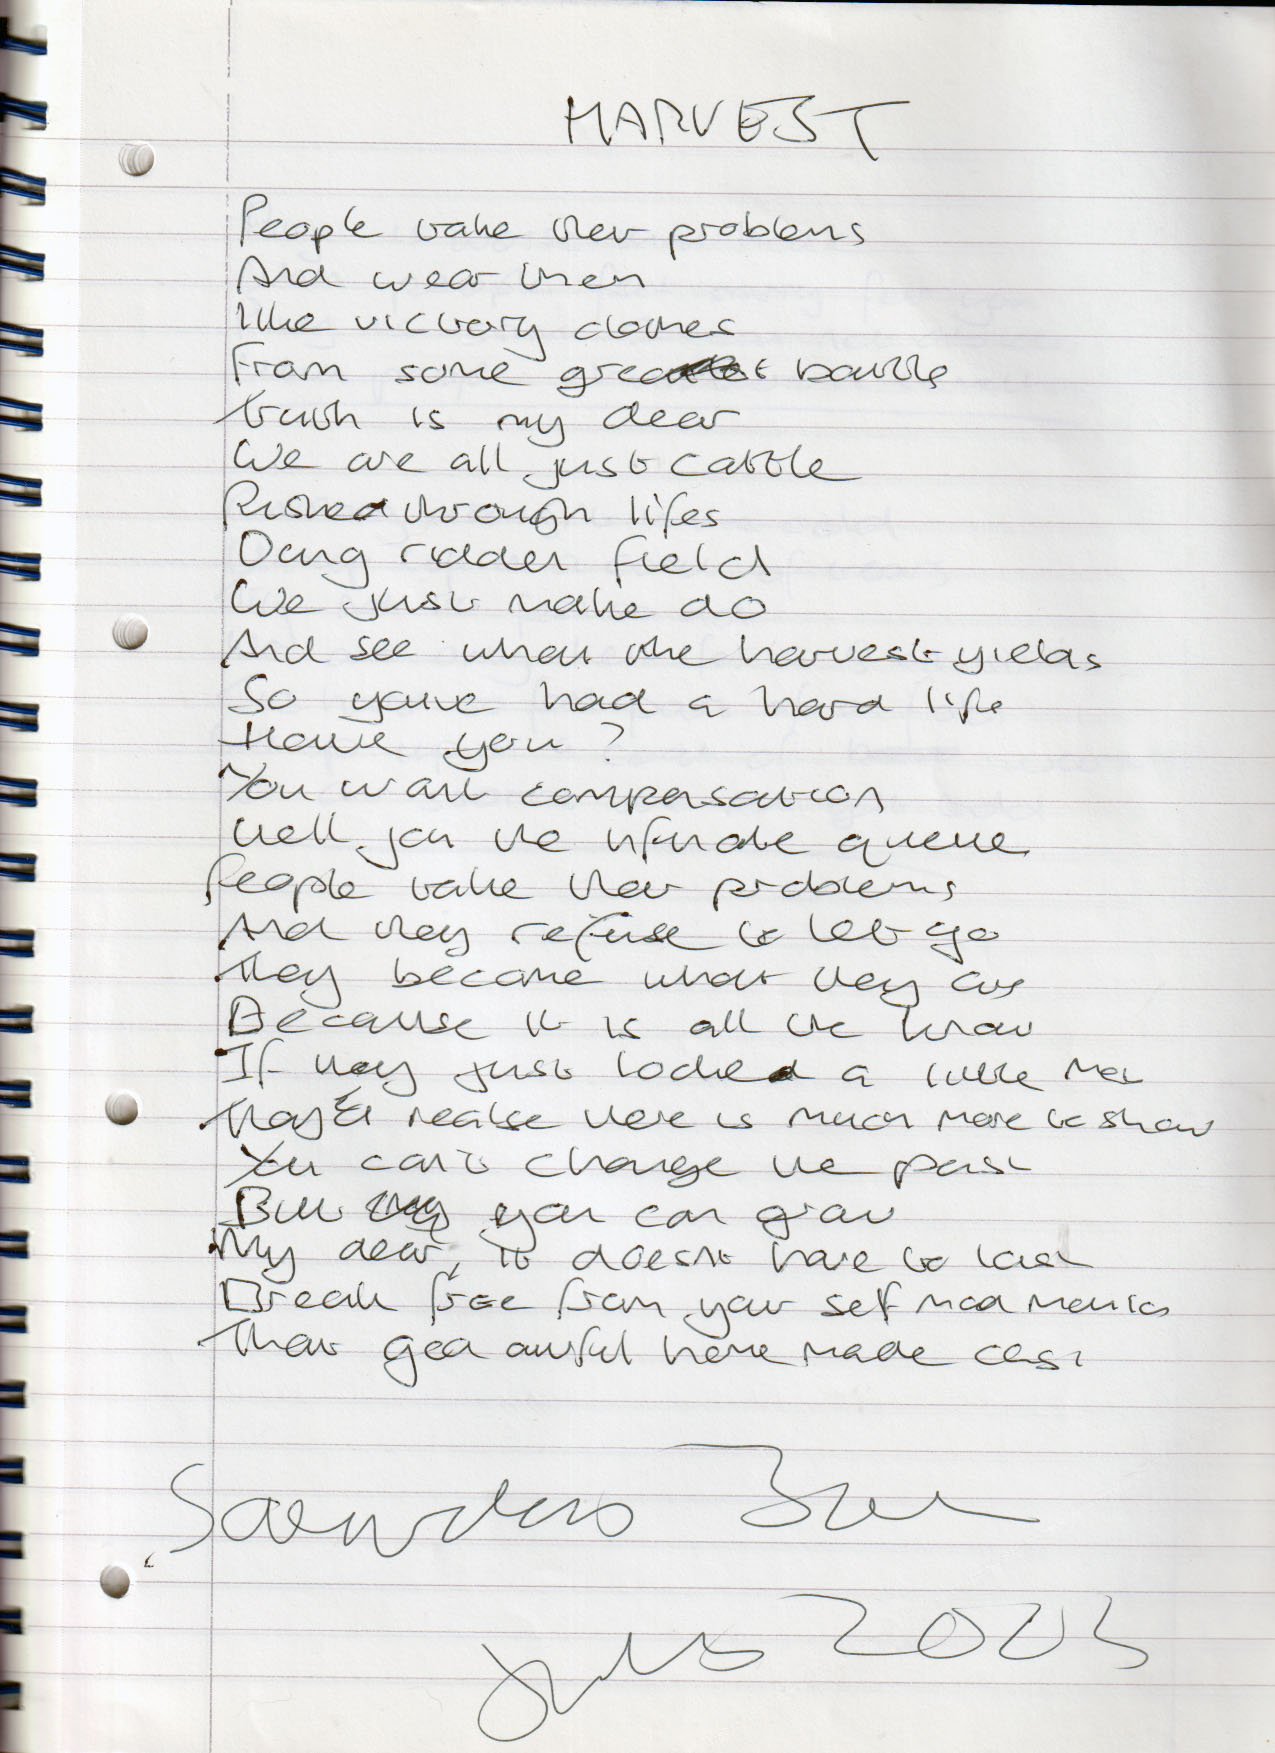 HARVEST
People take their problems
And wear them
like victory clothes
From some great battle
truth is my dear
We are all just cattle
Pushed through lifes
Dung ridden field
We just make do
And see what the harvest yields
So youve had a hard life
Have you?
You want compensation
Well join the infinate queue
People take their problems
And they refuse to let go
They become what they are
Because it is all we know
If they just looked a little
They'd realise there is much more to show
You can't change the past
But you can grow
My dear, it doesnt have to last
Break free from your self mad
That god awful home made cast
Saunders
2003